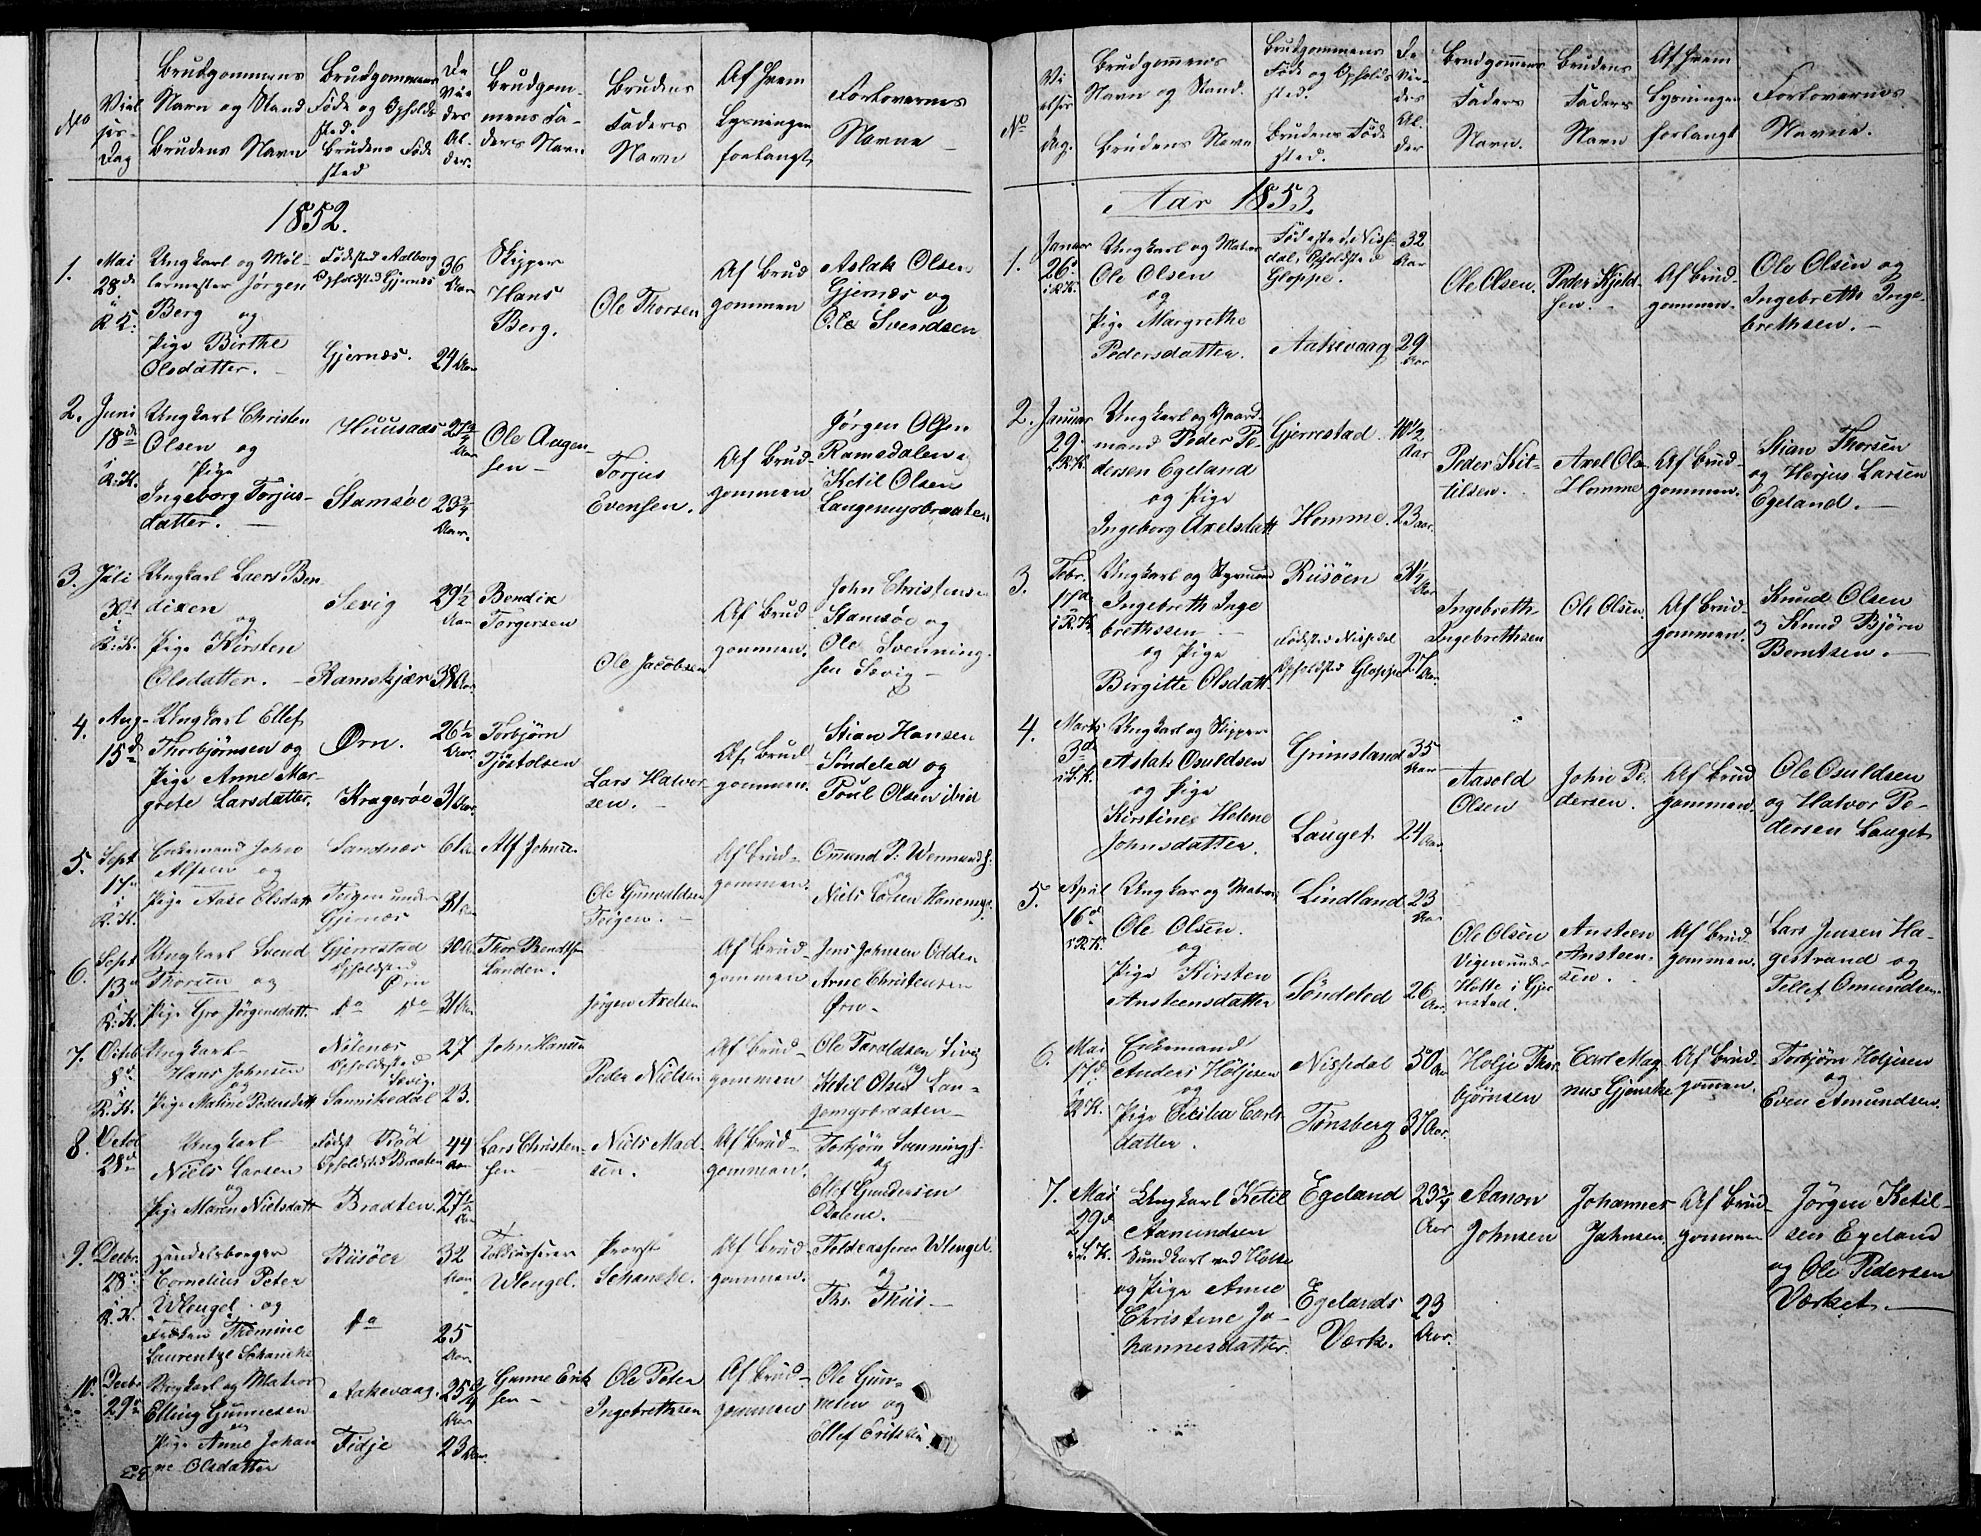 No
Viel
ses
Dag
Brudgommens
Navn og Stand
Brudens Navn
Brudgommens
Føde og Opholds
sted.
Brudens Føde
sted
De
Vie
des
Al-
der.
Brudgom-
mens Fa-
ders Navn
Brudens
Faders
Navn
Af hvem
Lysningen
forlangt
Forlovernes
Navne
1852.
1.
Mai
28de
i
R. K:
Ungkarl og Møl-
lermester Jørgen
Berg og
Pige Birthe
Olsdatter.
Fødested Aalborg
Opholdsted Gjernes
Gjernæs.
36
Aar
24 Aar
Skipper
Hans
Berg.
Ole Thorsen
Af Brud
gommen
Aslak Olsen
Gjernæs og
Ole Svendsen
2.
Juni
18de
i
R: K.
Ungkarl Christen
Olsen og
Pige
Ingeborg Torjus-
datter.
Huusaas
Stamsøe
27 3/4
Aar
23 3/4
Aar.
Ole Aagen-
sen
Torjus
Evensen.
Af Brud-
gommen
Jørgen Olsen
Ramsdalen og
Ketil Olsen
Langemyrbraaten
3.
Juli
30te
i
R: K.
Ungkarl Laers Ben
dixen
og
Pige Kirsten
Olsdatter.
Sevig
Ramskjær
29 1/2
Aar
38 Aar
Bendix
Torgersen
Ole Jacobsen
Af Brud
gommen.
John Christensen
Stamsøe og
Ole Svenning-
sen Sevig
4.
Aug-
15de
Ungkarl Ellef
Thorbjørnsen og
Pige Anne Mar-
grete Larsdatter.
Ørn.
Kragerøe
26 1/2
Aar
31 Aar.
Torbjørn
Tjøstolsen
Lars Halvor
sen.
Af Brud
gommen.
Stian Hansen
Søndeled og
Poul Olsen ibid
5.
Sept
17de
i
R. K.
Enkemand John
Alfsen og
Pige Aase Olsdatt
Sandnæs
Teigen under
Gjernæs
61 Aar
31 Aar
Alf Johnsen
Ole Gunvaldsen
Teigen.
Af Brud-
gommen.
Omund P. Wennevold:
og
Niels Larsen Hanemyr.
6.
Sept
13de
i
R: K.
Ungkarl Svend
Thorsen og
Pige Gro Jørgensdatt.
Gjerrestad
Opholdsted
Ørn
do do
30 Aar
31 Aar
Thor Bendtsen
Landen.
Jørgen Axelsen
Af Brud-
gommen
Jens Johnsen Odden
Arne Christensen
Ørn.
7.
Octob
8de
i
R. K.
Ungkarl
Hans Johnsen
og
Pige Maline Pedersdatt
Nilenæs
Opholdsted
Sevig.
Sannikedal
27
23.
John Hansen
Peder Nielsen
Af Brud-
gommen
Ole Taraldsen Sivig
og
Ketil Olsen Lan-
gemyrbraaten
8.
Octob
28de
Ungkarl
Niels Larsen
og
Pige Maren Nielsdatt
Fødst Røed
Opholdsted Braaten
Braaten.
44
Aar
27 1/2
Aar
Lars Christen-
sen
Niels Mad-
sen.
Af Brud-
gommen.
Torbjørn Svennings:
og
Ellef Gundersen
9.
Decbr.
28de
i
R. K.
Handelsborger
Cornelius Peter
Wengel og
Frøken Thomine
Laurentze Schanche
Riisøer
do
32
Aar
25
Aar.
Toldkasserer
Wengel.
Provst
Schanche.
Af Brud-
gommen.
Toldkasserer Wengel
og
Th. Thiis
10.
Decbr.
29de
Ungkarl og Matros
Elling Gunnesen
og
Pige Anne Johan
ne Olsdatter
Aakevaag.
Fidje
25 3/4
Aar
23 Aar.
Gunne Erik
sen
Ole Peter
Ingebrethsen
Af Brud-
gommen
Ole Gun-
nesen og
Ellef Eriksen
No
Vi
elses
dag.
Brudgommens
Navn og Stand.
Brudens Navn
Brudgommens
Føde og Opholds
sted.
Brudens Føde
sted.
De
Vie-
des
Al-
der
Brudgommens
Faders
Navn.
Brudens
Faders
Navn
Af hvem
Lysningen
forlangt
Forlovernes
Navne.
Aar 1853.
1.
Januar
26de
i R. K.
Ungkarl og Matros
Ole Olsen
og
Pige Margrethe
Pedersdatter.
Fødested Niss-
dal, Opholdsted
Gloppe.
Aakevaag
32
Aar
29
Aar
Ole Olsen.
Peder Kjeld-
sen.
Af Brud-
gommen.
Ole Olsen og
Ingebreth Inge-
brethsen.
2.
Januar
29de
i R. K.
Ungkarl og Gaard-
mand Peder Pe-
dersen Egeland
og Pige
Ingeborg Axelsdatt
Gjerrestad
Homme.
41 1/2
Aar
23 aar.
Peder Kit-
tilsen.
Axel Ols.
Homme
Af Brud-
gommen.
Stian Thorsen
og Herjus Larsen
Egeland.
3.
Febr.
17de
i R. K.
Ungkarl og Styrmand
Ingebreth Inge
brethssen
og Pige
Birgitte Olsdatt.
Riisøen
Fødested Nissedal
Opholdsted Gloppe
31 1/2
Aar
27 Aar.
Ingebreth
Ingebrethsen
Ole Olsen.
Af Brud-
gommen.
Knud Olsen
og Knud Bjørn
Berntsen.
4.
Marts
3de
i S. K.
Ungkarl og Skipper
Aslak Osuldsen
og Pige
Kirstine Helene
Johnsdatter.
Grimsland
Lauget
35
Aar
24 Aar
Aasold
Olsen
John Pe-
dersen.
Af Brud
gommen.
Ole Osuldsen
og Halvor Pe-
dersen Lauget
5.
April
16de
i R. K.
Ungkar og Matros,
Ole Olsen.
og
Pige Kirsten
Ansteensdatter
Lindland
Søndeled
23
Aar
26
Aar.
Ole Olsen
Vigen under
Holte i Gjer
restad.
Ansteen
Ansteen-
sen.
Af Brud-
gommen.
Lars Jensen Ha-
gestrand og
Tellef Omundsen.
6.
Mai
17de
i
R. K.
Enkemand
Anders Høljesen
og
Pige Cecilia Carls
datter.
Nissedal
Tønsberg
50 Aar
37 Aar.
Holje Thor
bjørnsen
Carl Mag
nus Gjenske
Af Brud-
gommen.
Torbjørn Holjesen
og
Even Amundsen.
7.
Mai
29de
i S. K.
Ungkarl Ketil
Aamundsen
Sundkarl ved Holte
og Pige Anne
Christine Jo-
hannesdatter.
Egeland
Egelands
Værk.
23 3/4
Aar
23
Aar.
Aanon
Johnsen
Johannes
Johnsen
Af Brud-
gommen
Jørgen Ketil-
sen Egeland
og Ole Pedersen
Værket.